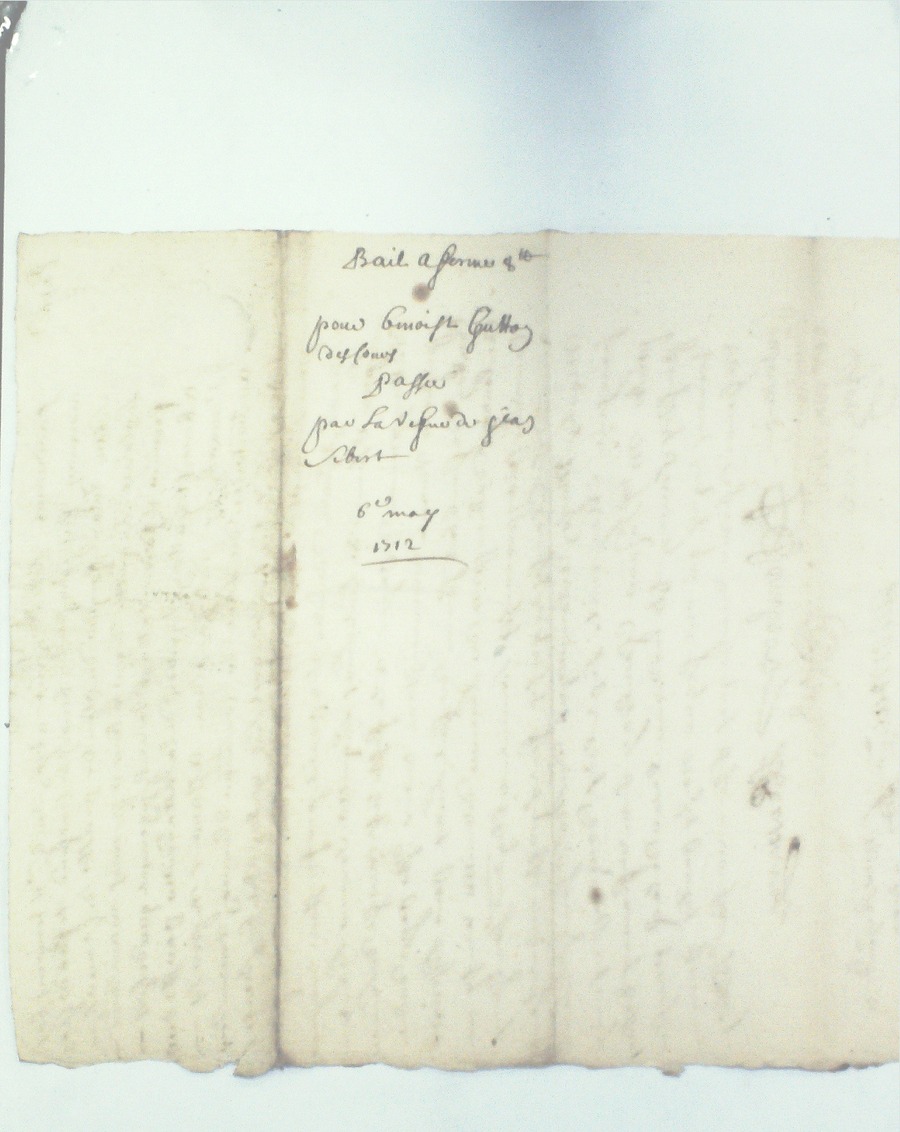 Bail a ferme 8tt
pour benoist Gutton
des Cours
Passe
par La vefve de jean
Sibert
6e may
1712